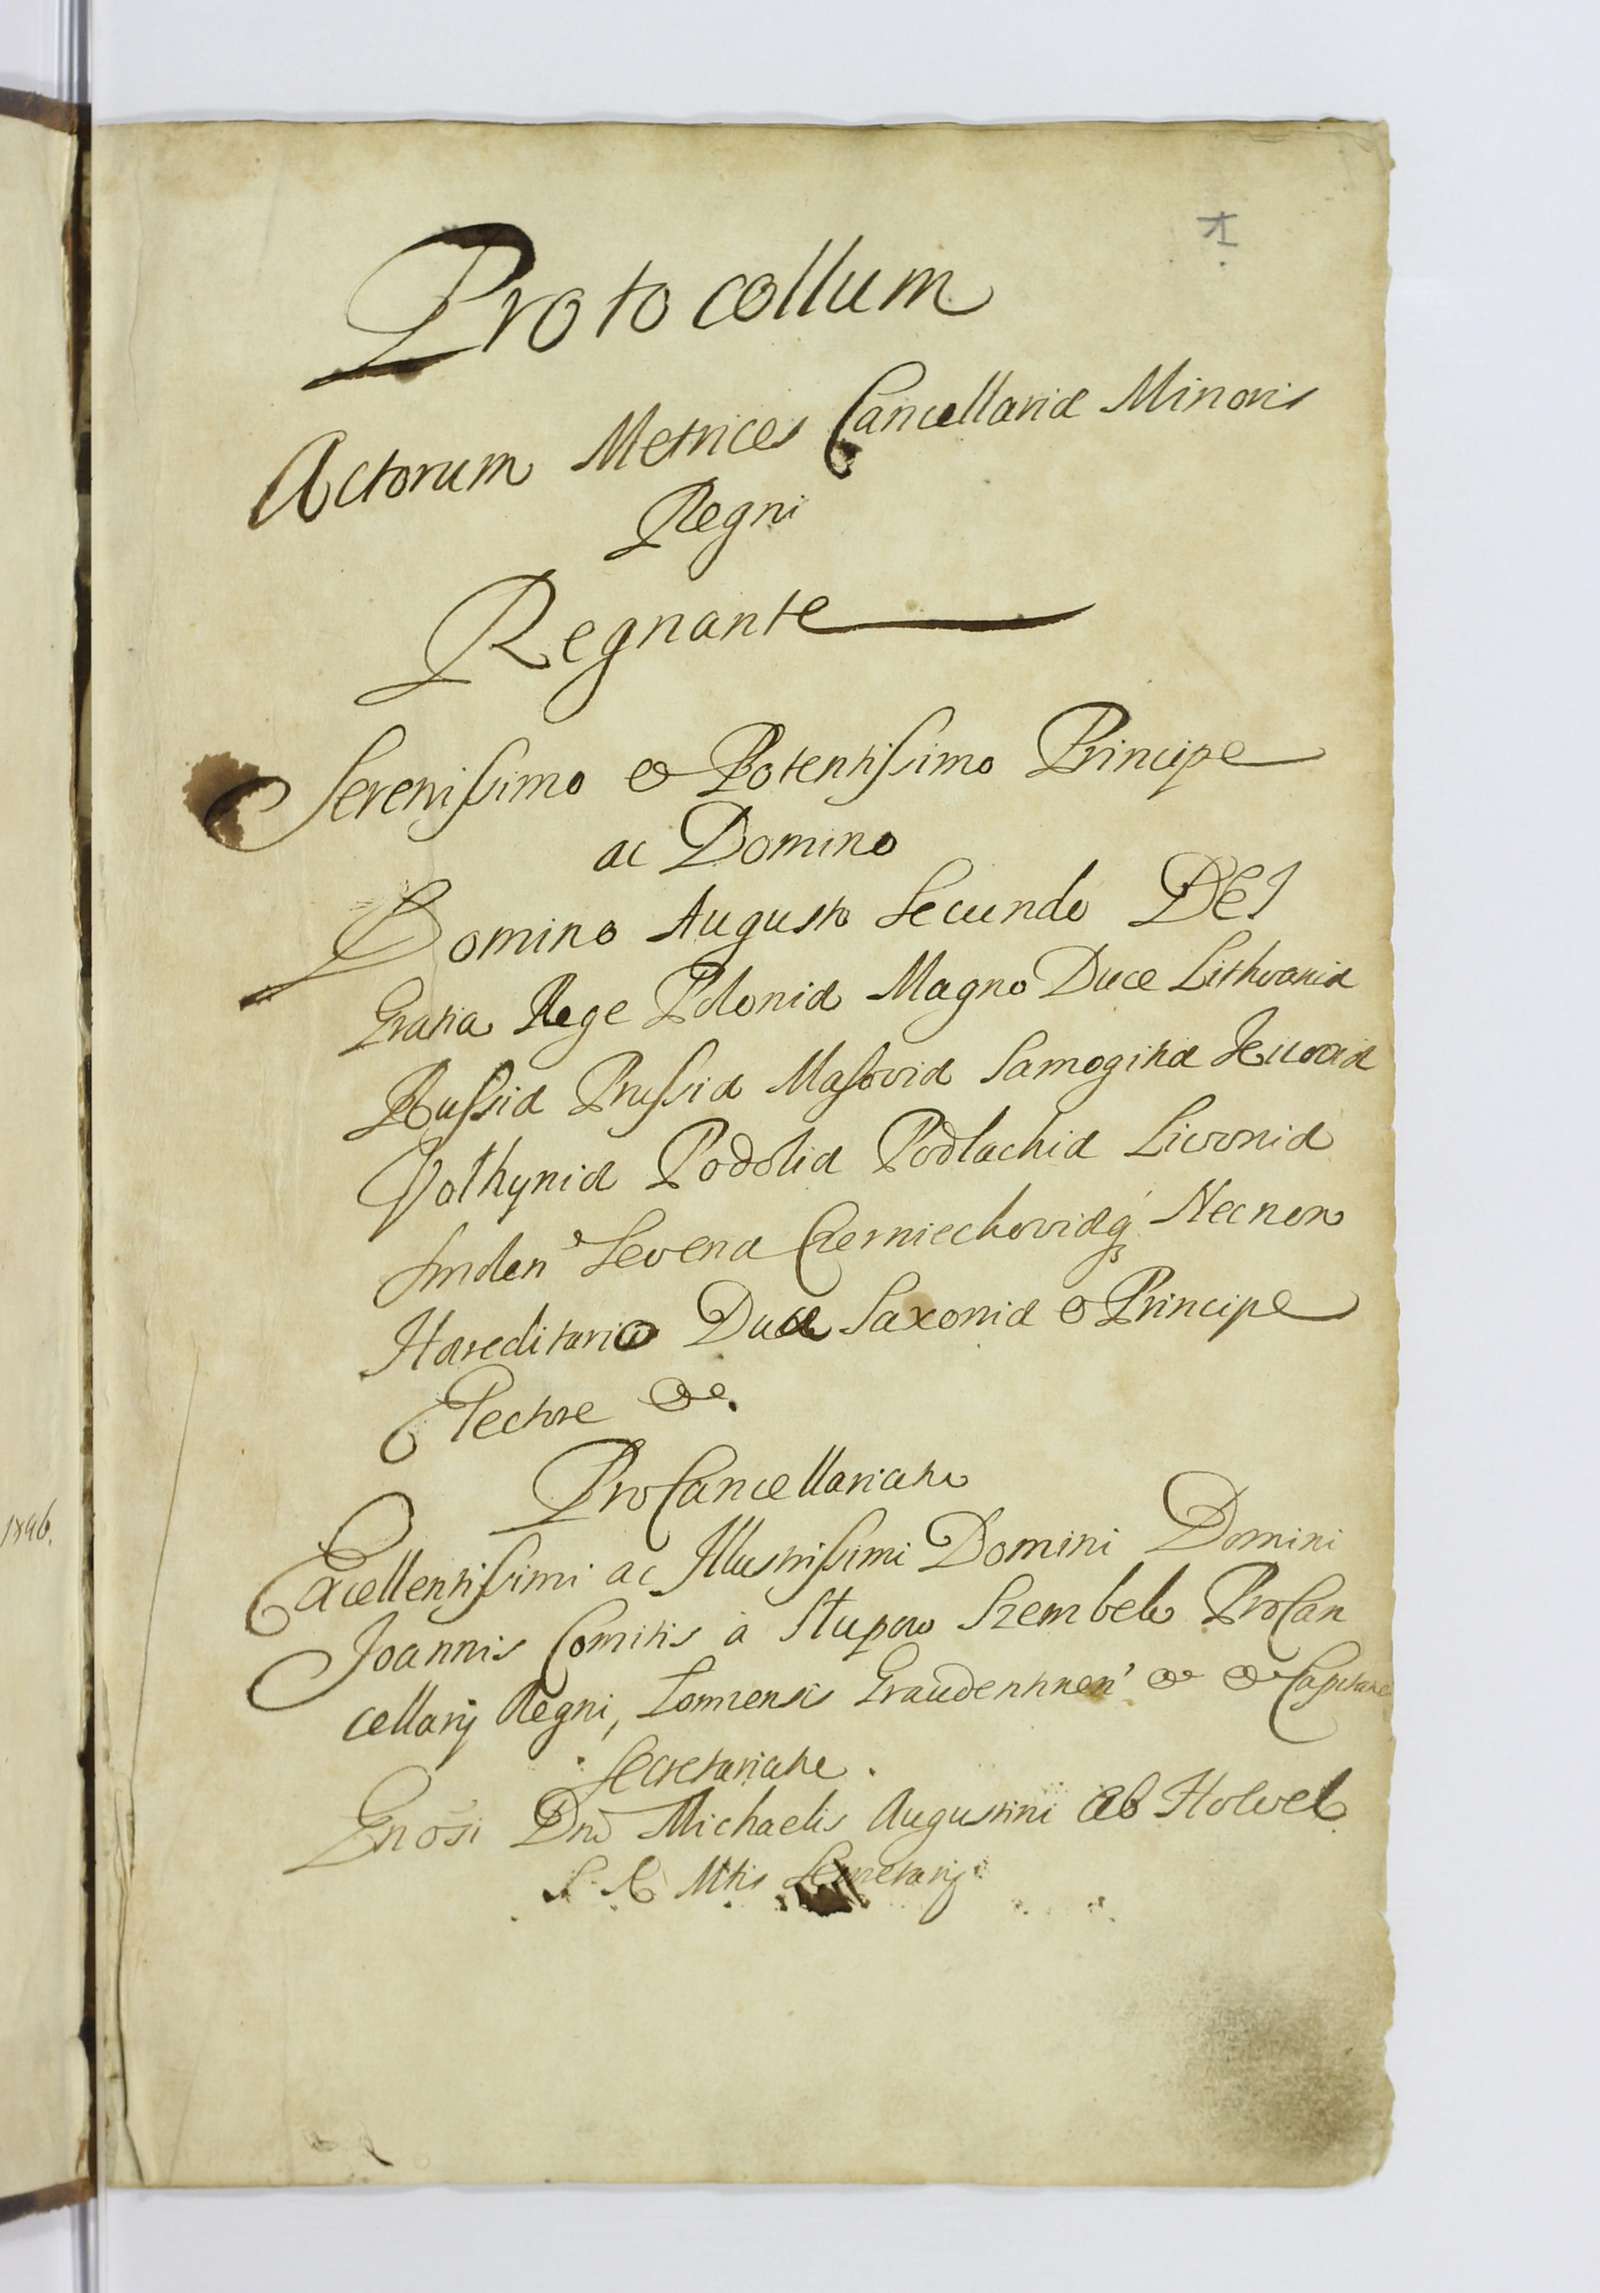 1
Protocollum
Actorum Metrices Cancellariæ Minoris
Regni
Regnante
Serenissimo et Potentissimo Principe
ac Domino
Domino Augusto Secundo DEI
Gratia Rege Poloniæ Magno Duce Lithvaniæ
Russiæ Prussiæ Masoviæ Samogitiæ Kijoviæ
Volhyniæ Podoliæ Podlachiæ Livoniæ
Smolen Severiæ Czerniechoviæq Necnon
Hæreditario Duce Saxoniæ & Principe
Electore &c.
ProCancellariatu
Excellentissimi ac Illustrissimi Domini Domini
Joannis Comitis à Słupow Szembek ProCan
cellarij Regni, Lomzensis Graudentinen' &c &c Capitanei
Secretariatu.
Gnosi Dni Michaelis Augustini ab Holvel
S. R. Mtis Secretarij
1846.